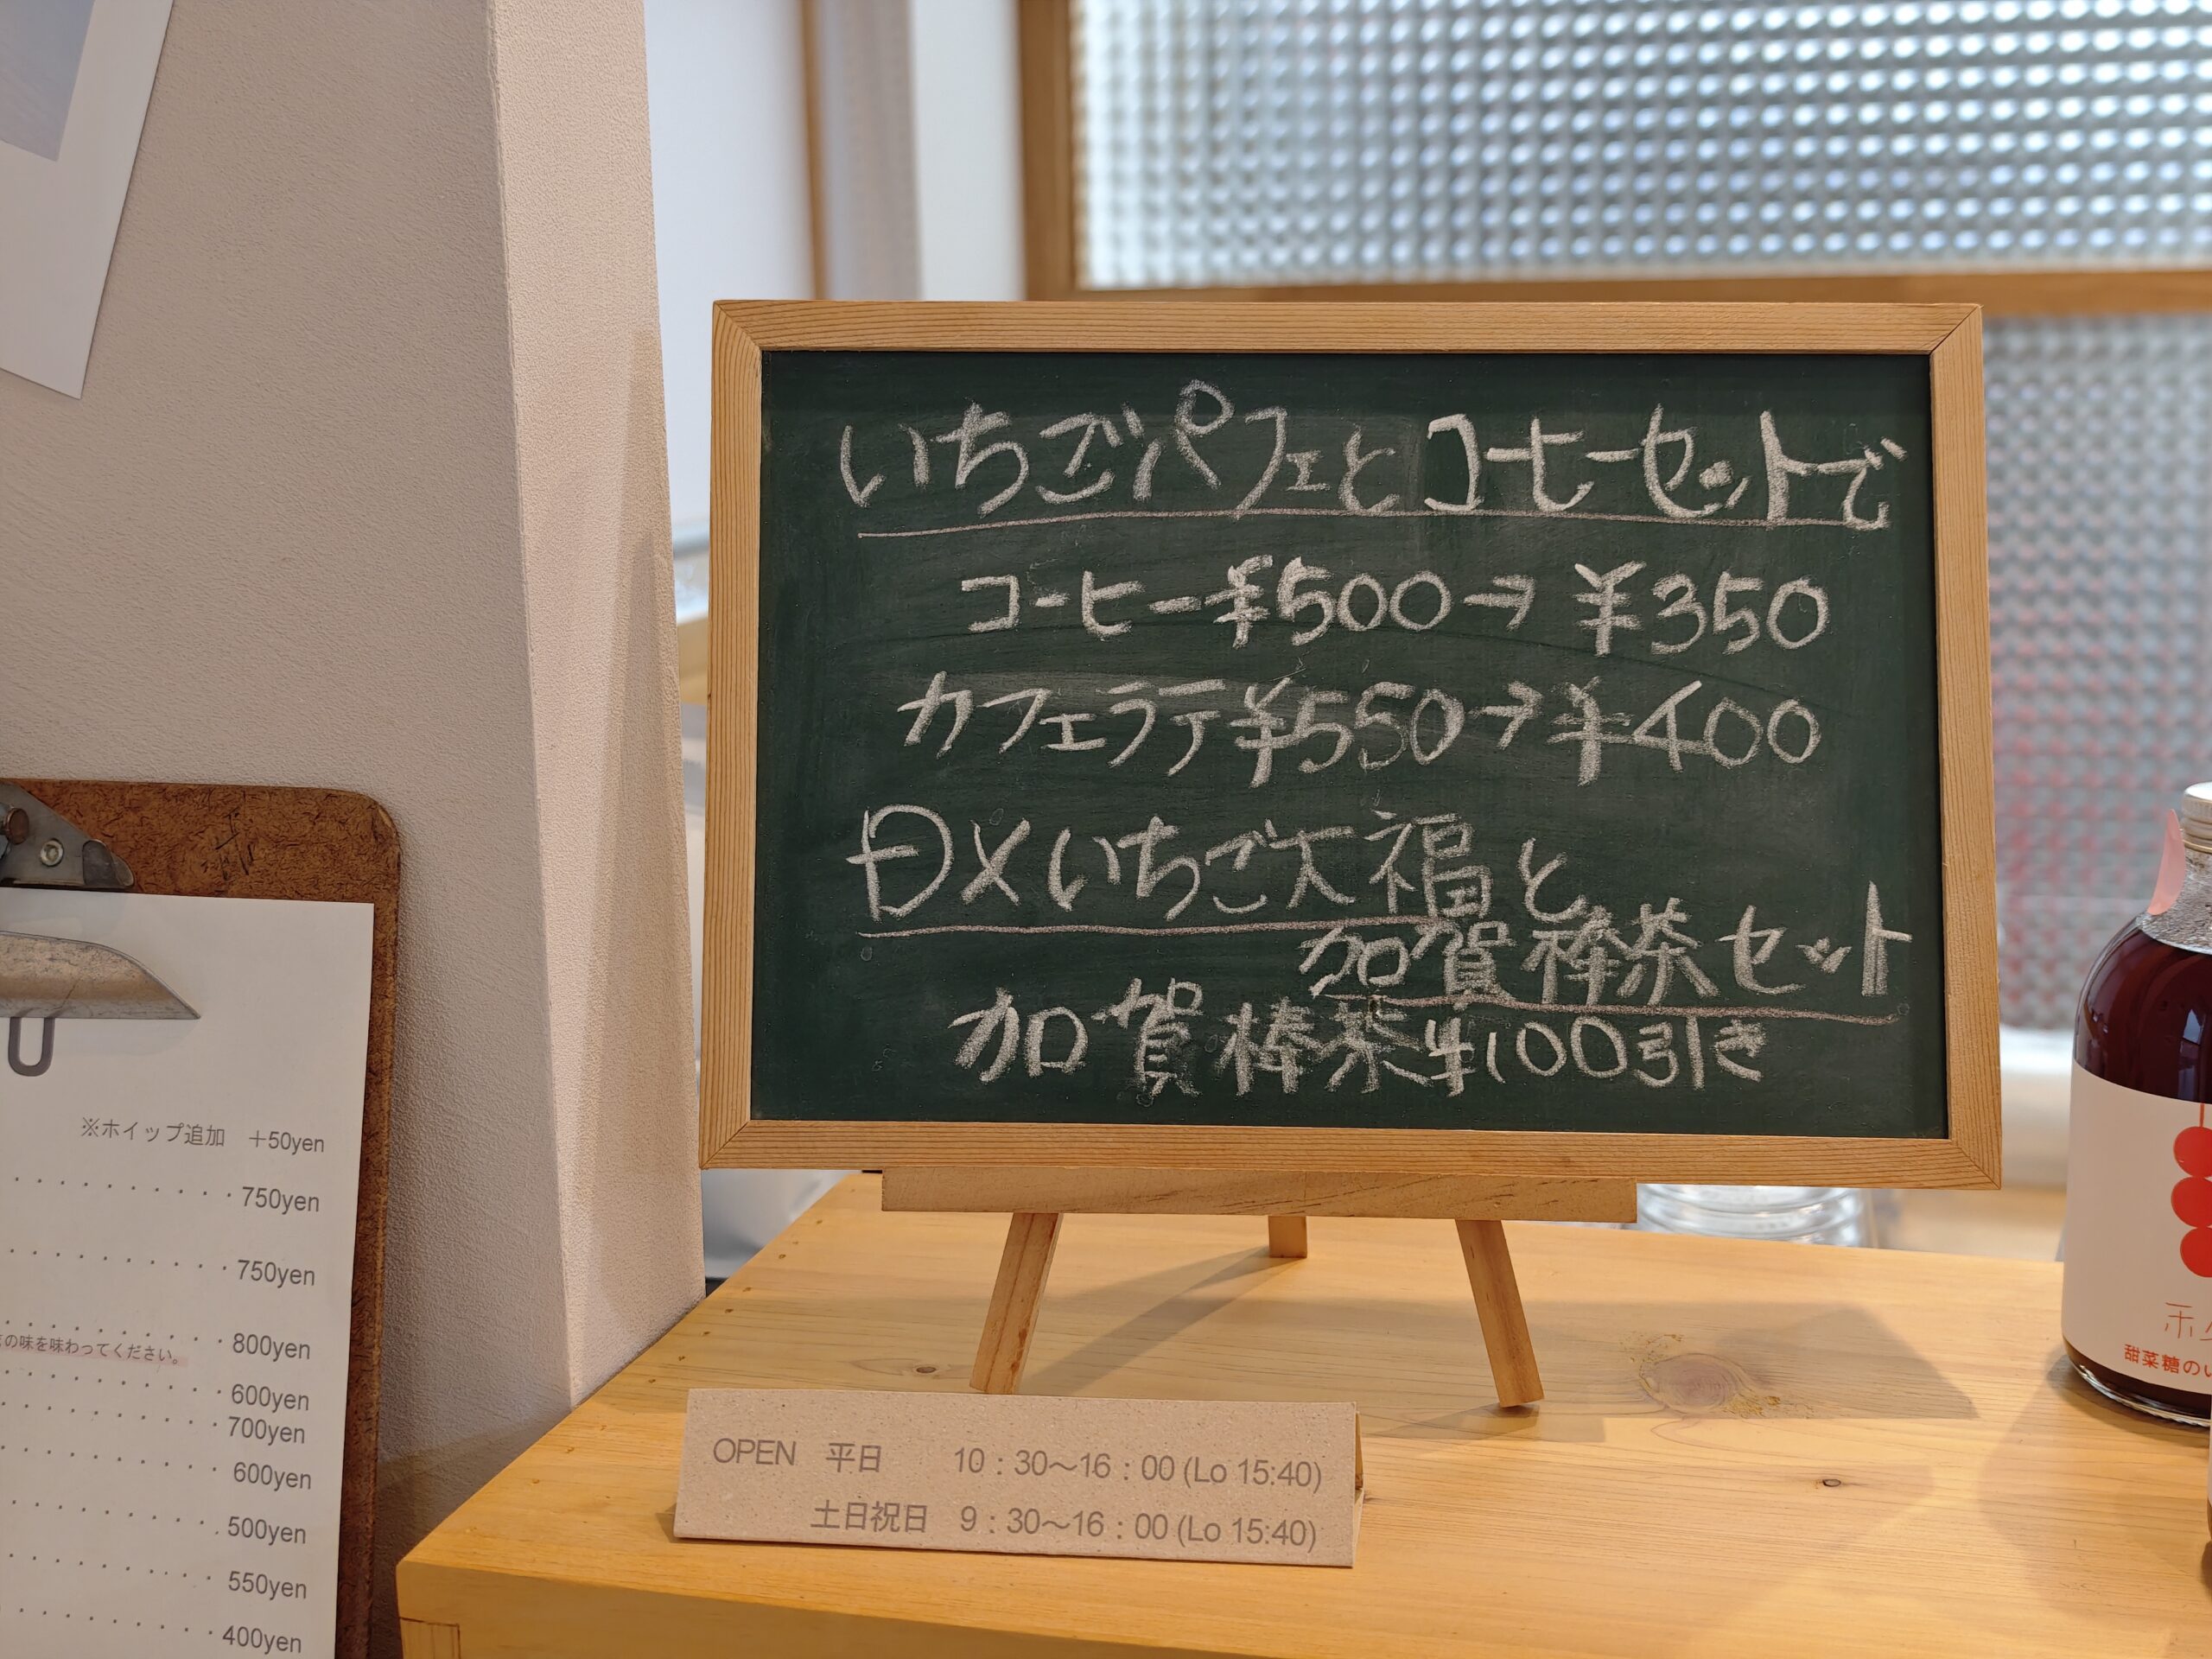 いちごパフェとコーヒーセットで
コーヒー¥500→¥350
カフェラテ¥550→¥400
DXいちご大福と
加賀棒茶セット
加賀棒茶¥100引き
OPEN 平日 10：30〜16：00 (Lo 15:40)
土日祝日 9：30〜16：00 (Lo 15:40)
※ホイップ追加 +50yen
750yen
750yen
800yen
の味を味わってください。
600yen
700yen
600yen
500yen
550yen
400yen
甜菜糖のい